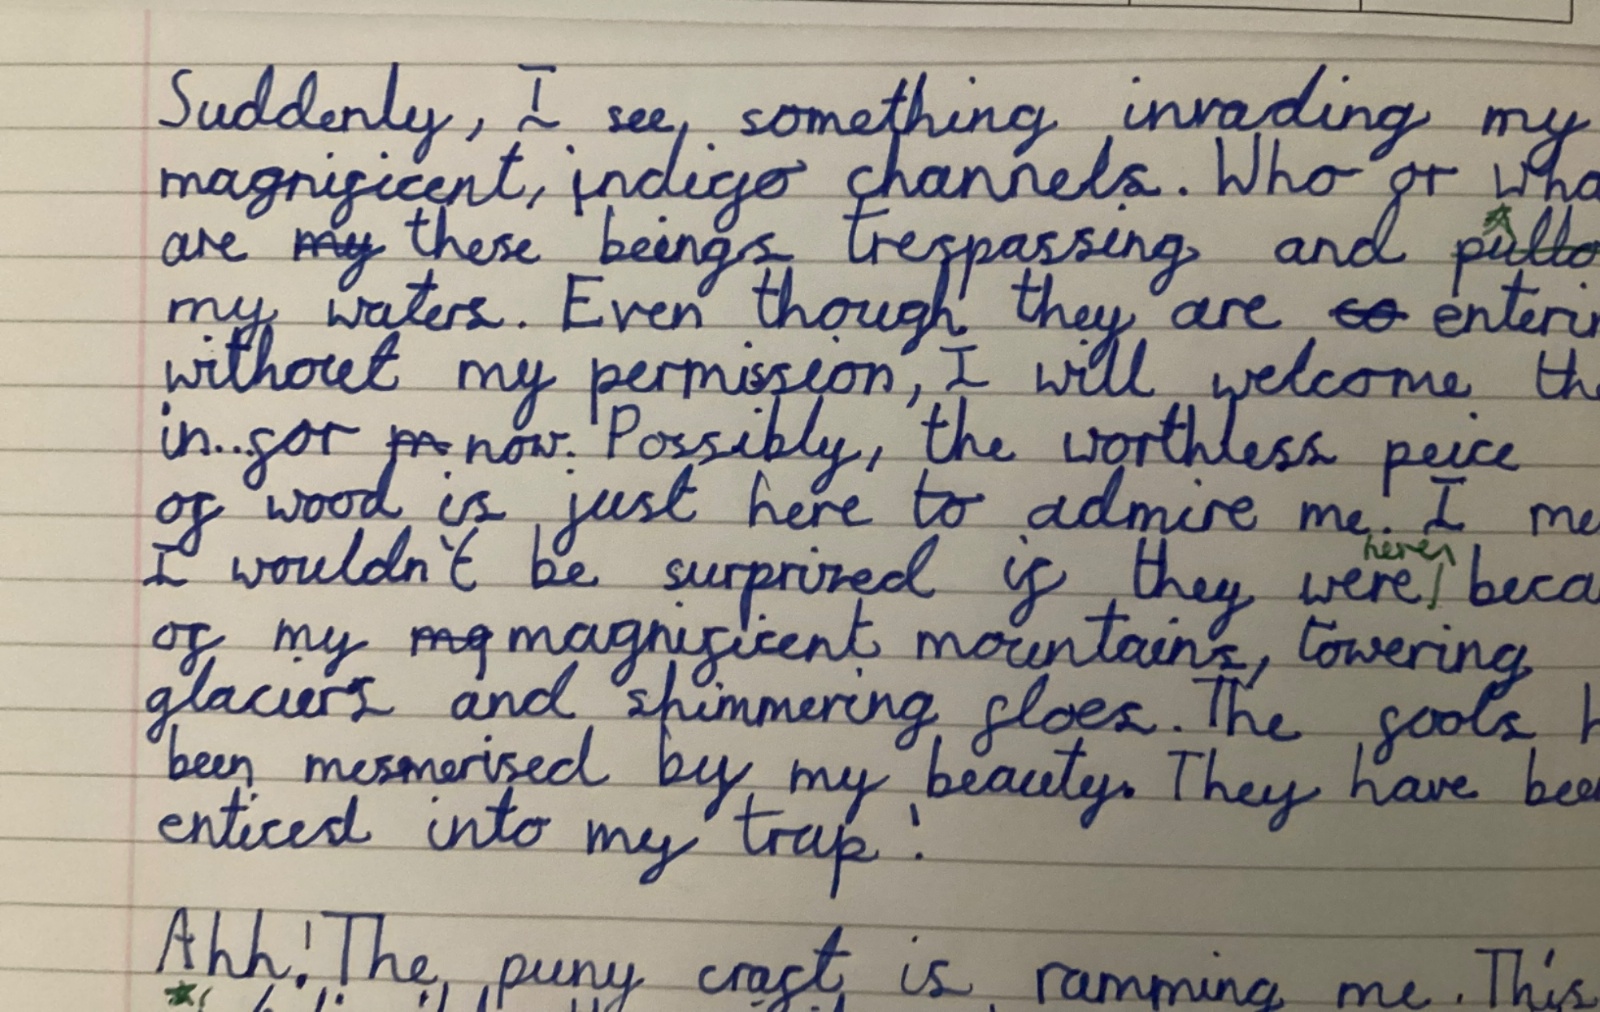 Suddenly, I see, something invading my
magnificent, indigo channels. Who or wha
are my these beings trespassing and
my waters. Even though they are so enterin
without my permission, I will welcome the
in..for m now. Possibly, the worthless peice
of wood is just here to admire me. I me
here,
I wouldn't be surprized if they were beca
of my mg magnificent mountains, towering
glaciers and shimmering floes. The fools h
been mesmerised by my beauty. They have bee
enticed into my trap!
Ahh! The puny craft is ramming me. This